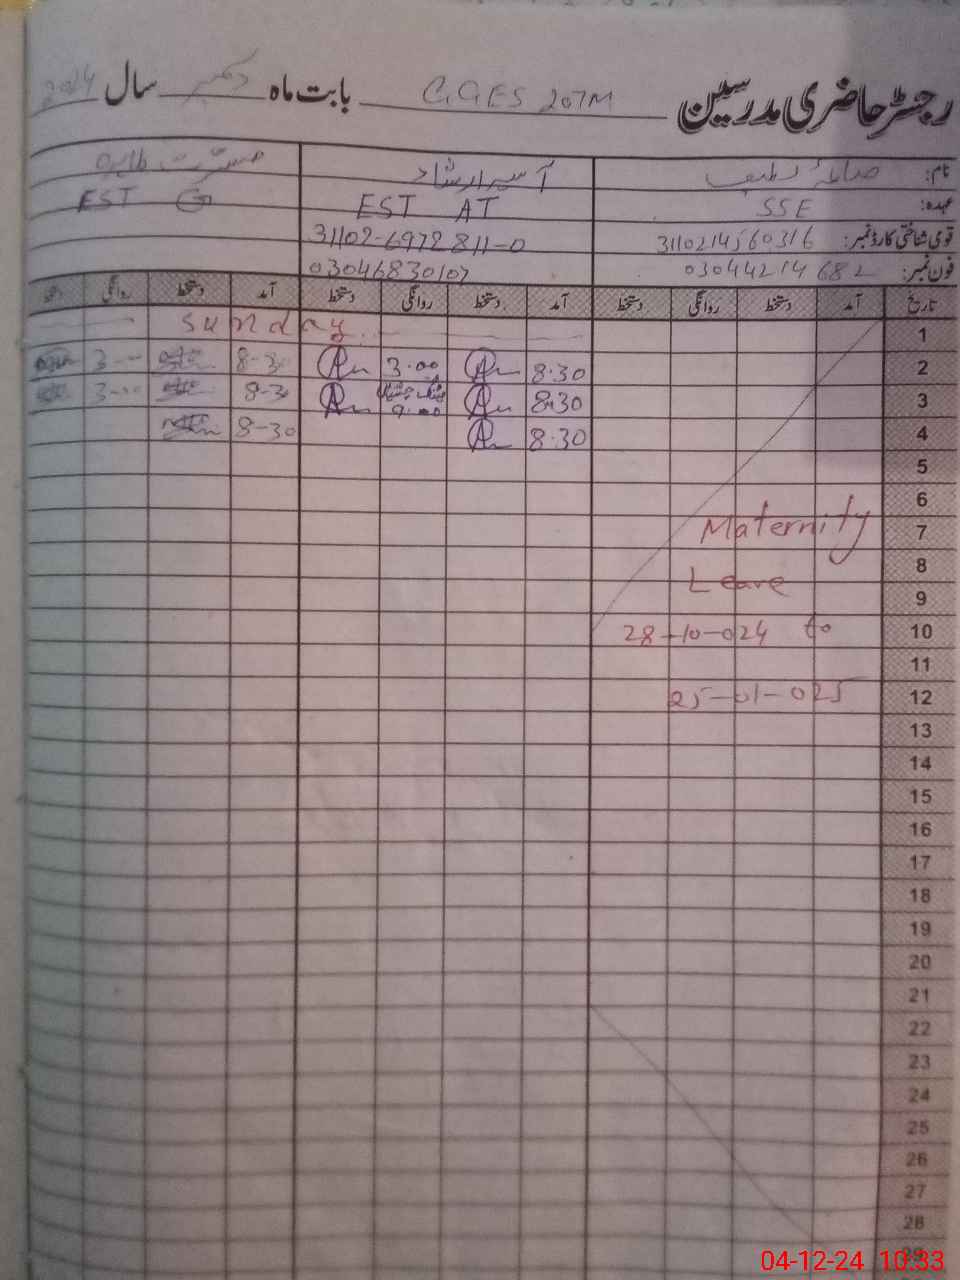 رجسٹر حاضری مدرسین GGES 207M بابت ماہ دسمبر سال 2024
نام: صائمہ لطیف آسیہ ارشاد مسرت طاہرہ
عہدہ: SSE EST AT EST G
قومی شناختی کارڈ نمبر: 3110214560316 31102-6972811-0
فون نمبر: 03044214682 03046830107
تاریخ آمد دستخط روانگی دستخط آمد دستخط روانگی دستخط آمد دستخط روانگی
1 Sunday
2 8.30 3.00 8-30 3-00
3 8.30 9.00 8-30 3-00
4 8.30 8-30
5
6
7 Maternity
8 Leave
9
10 28-10-024 to
11
12 25-01-025
13
14
15
16
17
18
19
20
21
22
23
24
25
26
27
28
29
04-12-24 10:33